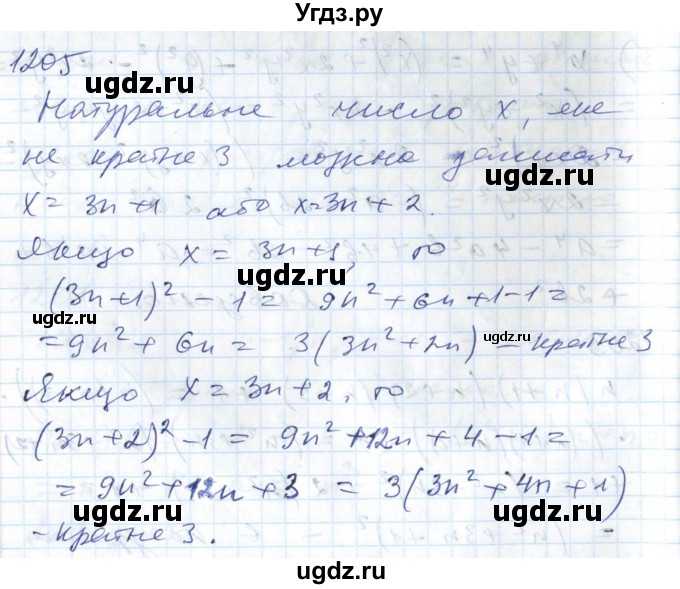 Угдз.ру
1205
Натуральне число x, яке
не кратне 3 можна записати
x = 3n+1 або x=3n+2.
Якщо x = 3n+1, то
(3n+1)² - 1 = 9n² + 6n + 1 - 1 =
= 9n² + 6n = 3(3n²+2n) - кратне 3
Якщо x = 3n+2, то
(3n+2)² - 1 = 9n² + 12n + 4 - 1 =
= 9n² + 12n + 3 = 3(3n² + 4n + 1)
- кратне 3.
ugdz.ru
ugdz.ru
ugdz.ru
ugdz.ru
ugdz.ru
ugdz.ru
ugdz.ru
ugdz.ru
ugdz.ru
ugdz.ru
ugdz.ru